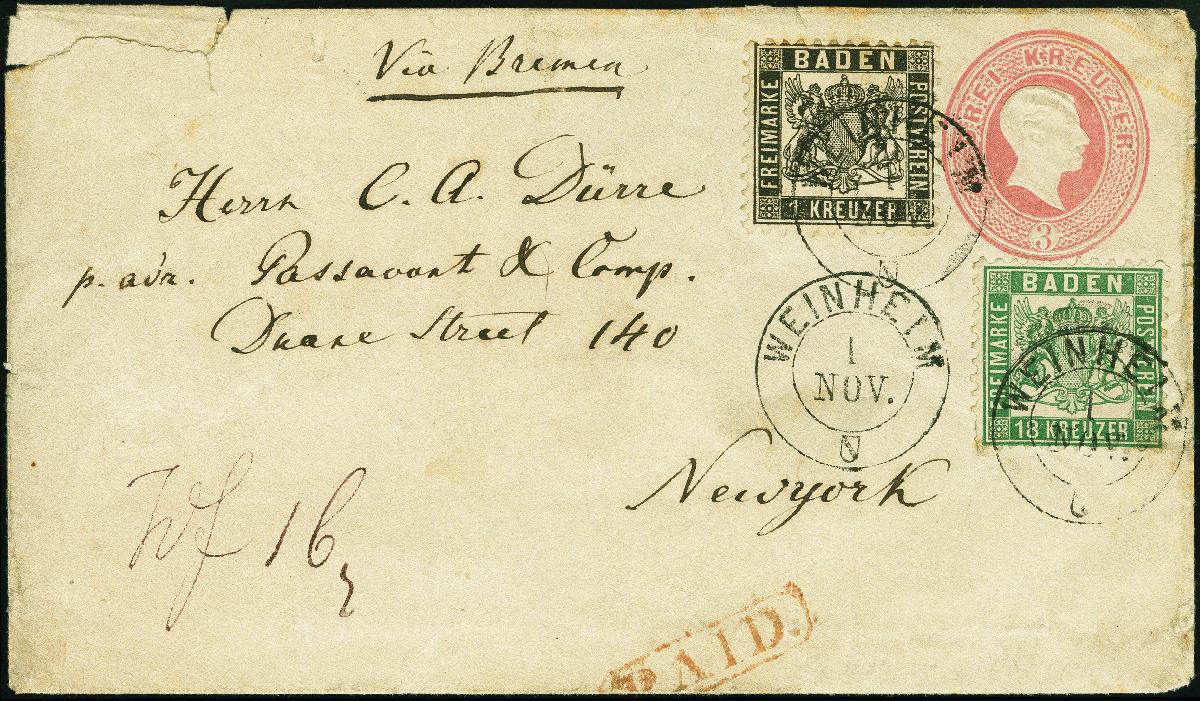 Via Bremen
BADEN
FREIMARKE
POSTVEREIN
1 KREUZER
DREI KREUZER
3
Herrn C. A. Dürre
p. adr. Passavant & Comp.
Duane Street 140
WEINHEIM
1
NOV.
BADEN
FREIMARKE
18 KREUZER
WEINHEIM
1
NOV.
WEINHEIM
1
NOV.
Newyork
Wf 16
PAID.